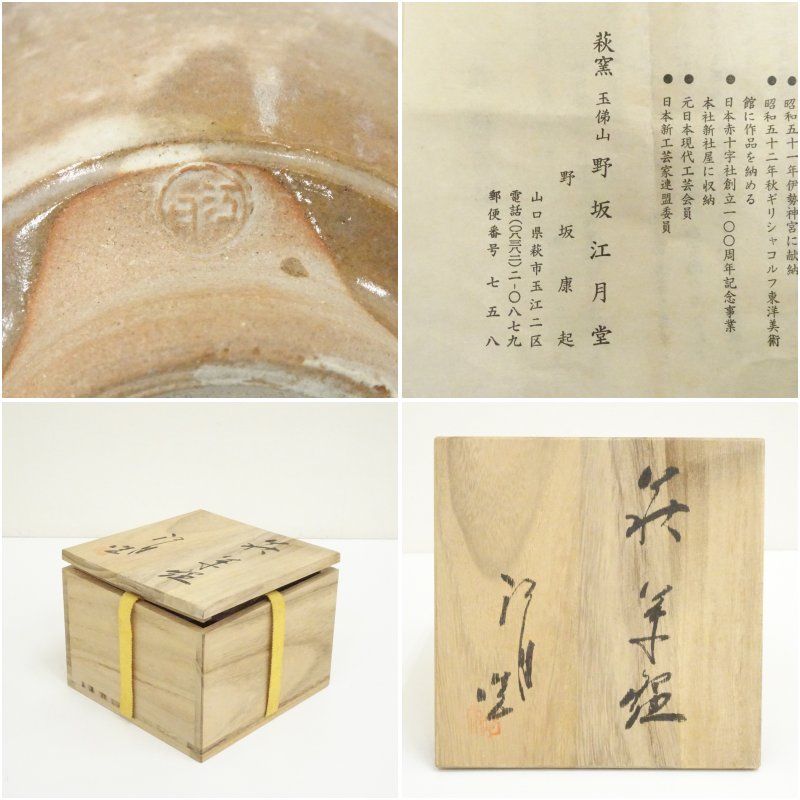 昭和五十一年伊勢神宮に献納
昭和五十二年秋ギリシャコルフ東洋美術
館に作品を納める
日本赤十字社創立一〇〇周年記念事業
本社新社屋に収納
元日本現代工芸会員
日本新工芸家連盟委員
萩窯 玉僊山 野坂江月堂
野坂康起
山口県萩市玉江二区
電話(〇八三八二)二-〇八七九
郵便番号 七五八
萩 茶碗
江月造